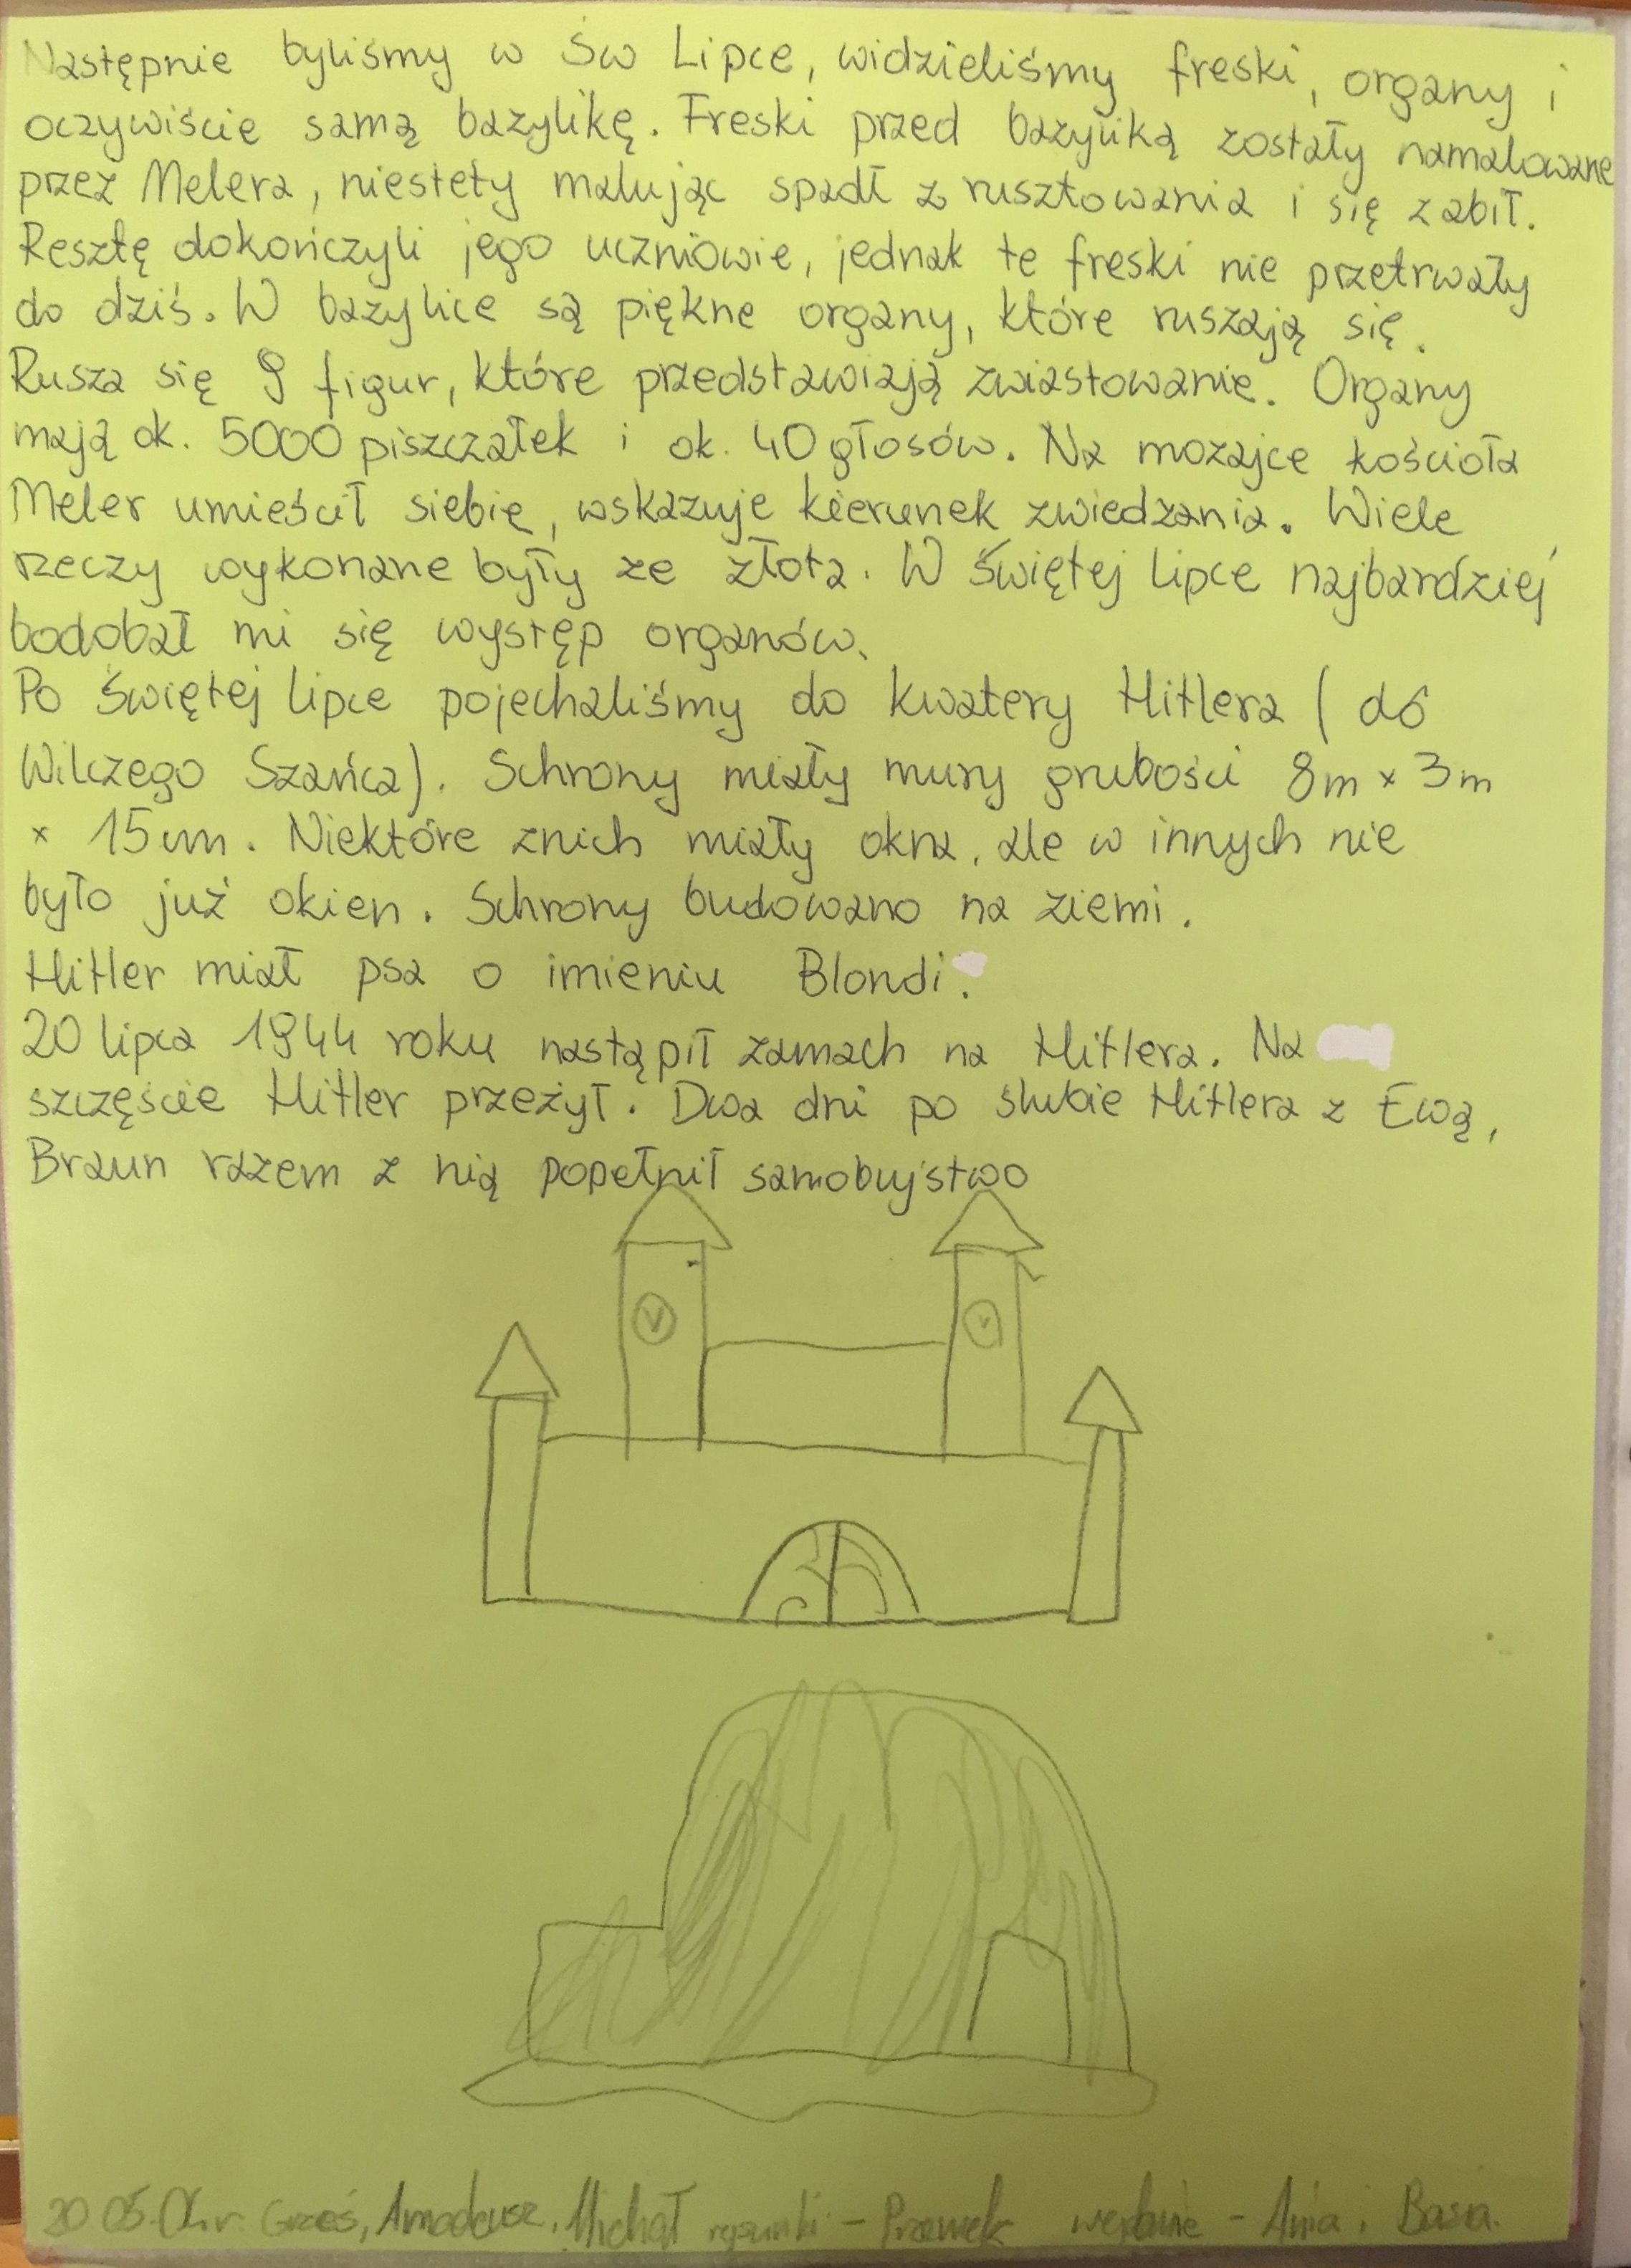 Następnie byliśmy w Św Lipce, widzieliśmy freski, organy i
oczywiście samą bazylikę. Freski przed bazyliką zostały namalowane
przez Melera, niestety malując spadł z rusztowania i się zabił.
Resztę dokończyli jego uczniowie, jednak te freski nie przetrwały
do dziś. W bazylice są piękne organy, które ruszają się.
Rusza się 9 figur, które przedstawiają zwiastowanie. Organy
mają ok. 5000 piszczałek i ok. 40 głosów. Na mozajce kościoła
Meler umieścił siebie, wskazuje kierunek zwiedzania. Wiele
rzeczy wykonane były ze złota. W Świętej Lipce najbardziej
bodobał mi się występ organów.
Po Świętej Lipce pojechaliśmy do kwatery Hitlera (do
Wilczego Szańca). Schrony miały mury grubości 8m x 3m
x 15cm. Niektóre znich miały okna, ale w innych nie
było już okien. Schrony budowano na ziemi.
Hitler miał psa o imieniu Blondi.
20 lipca 1944 roku nastąpił zamach na Hitlera. Na
szczęście Hitler przeżył. Dwa dni po ślubie Hitlera z Ewą,
Braun razem z nią popełnił samobujstwo
20 05. Grześ, Amadeusz, Michał rysunki - Przemek - Ania i Basia.